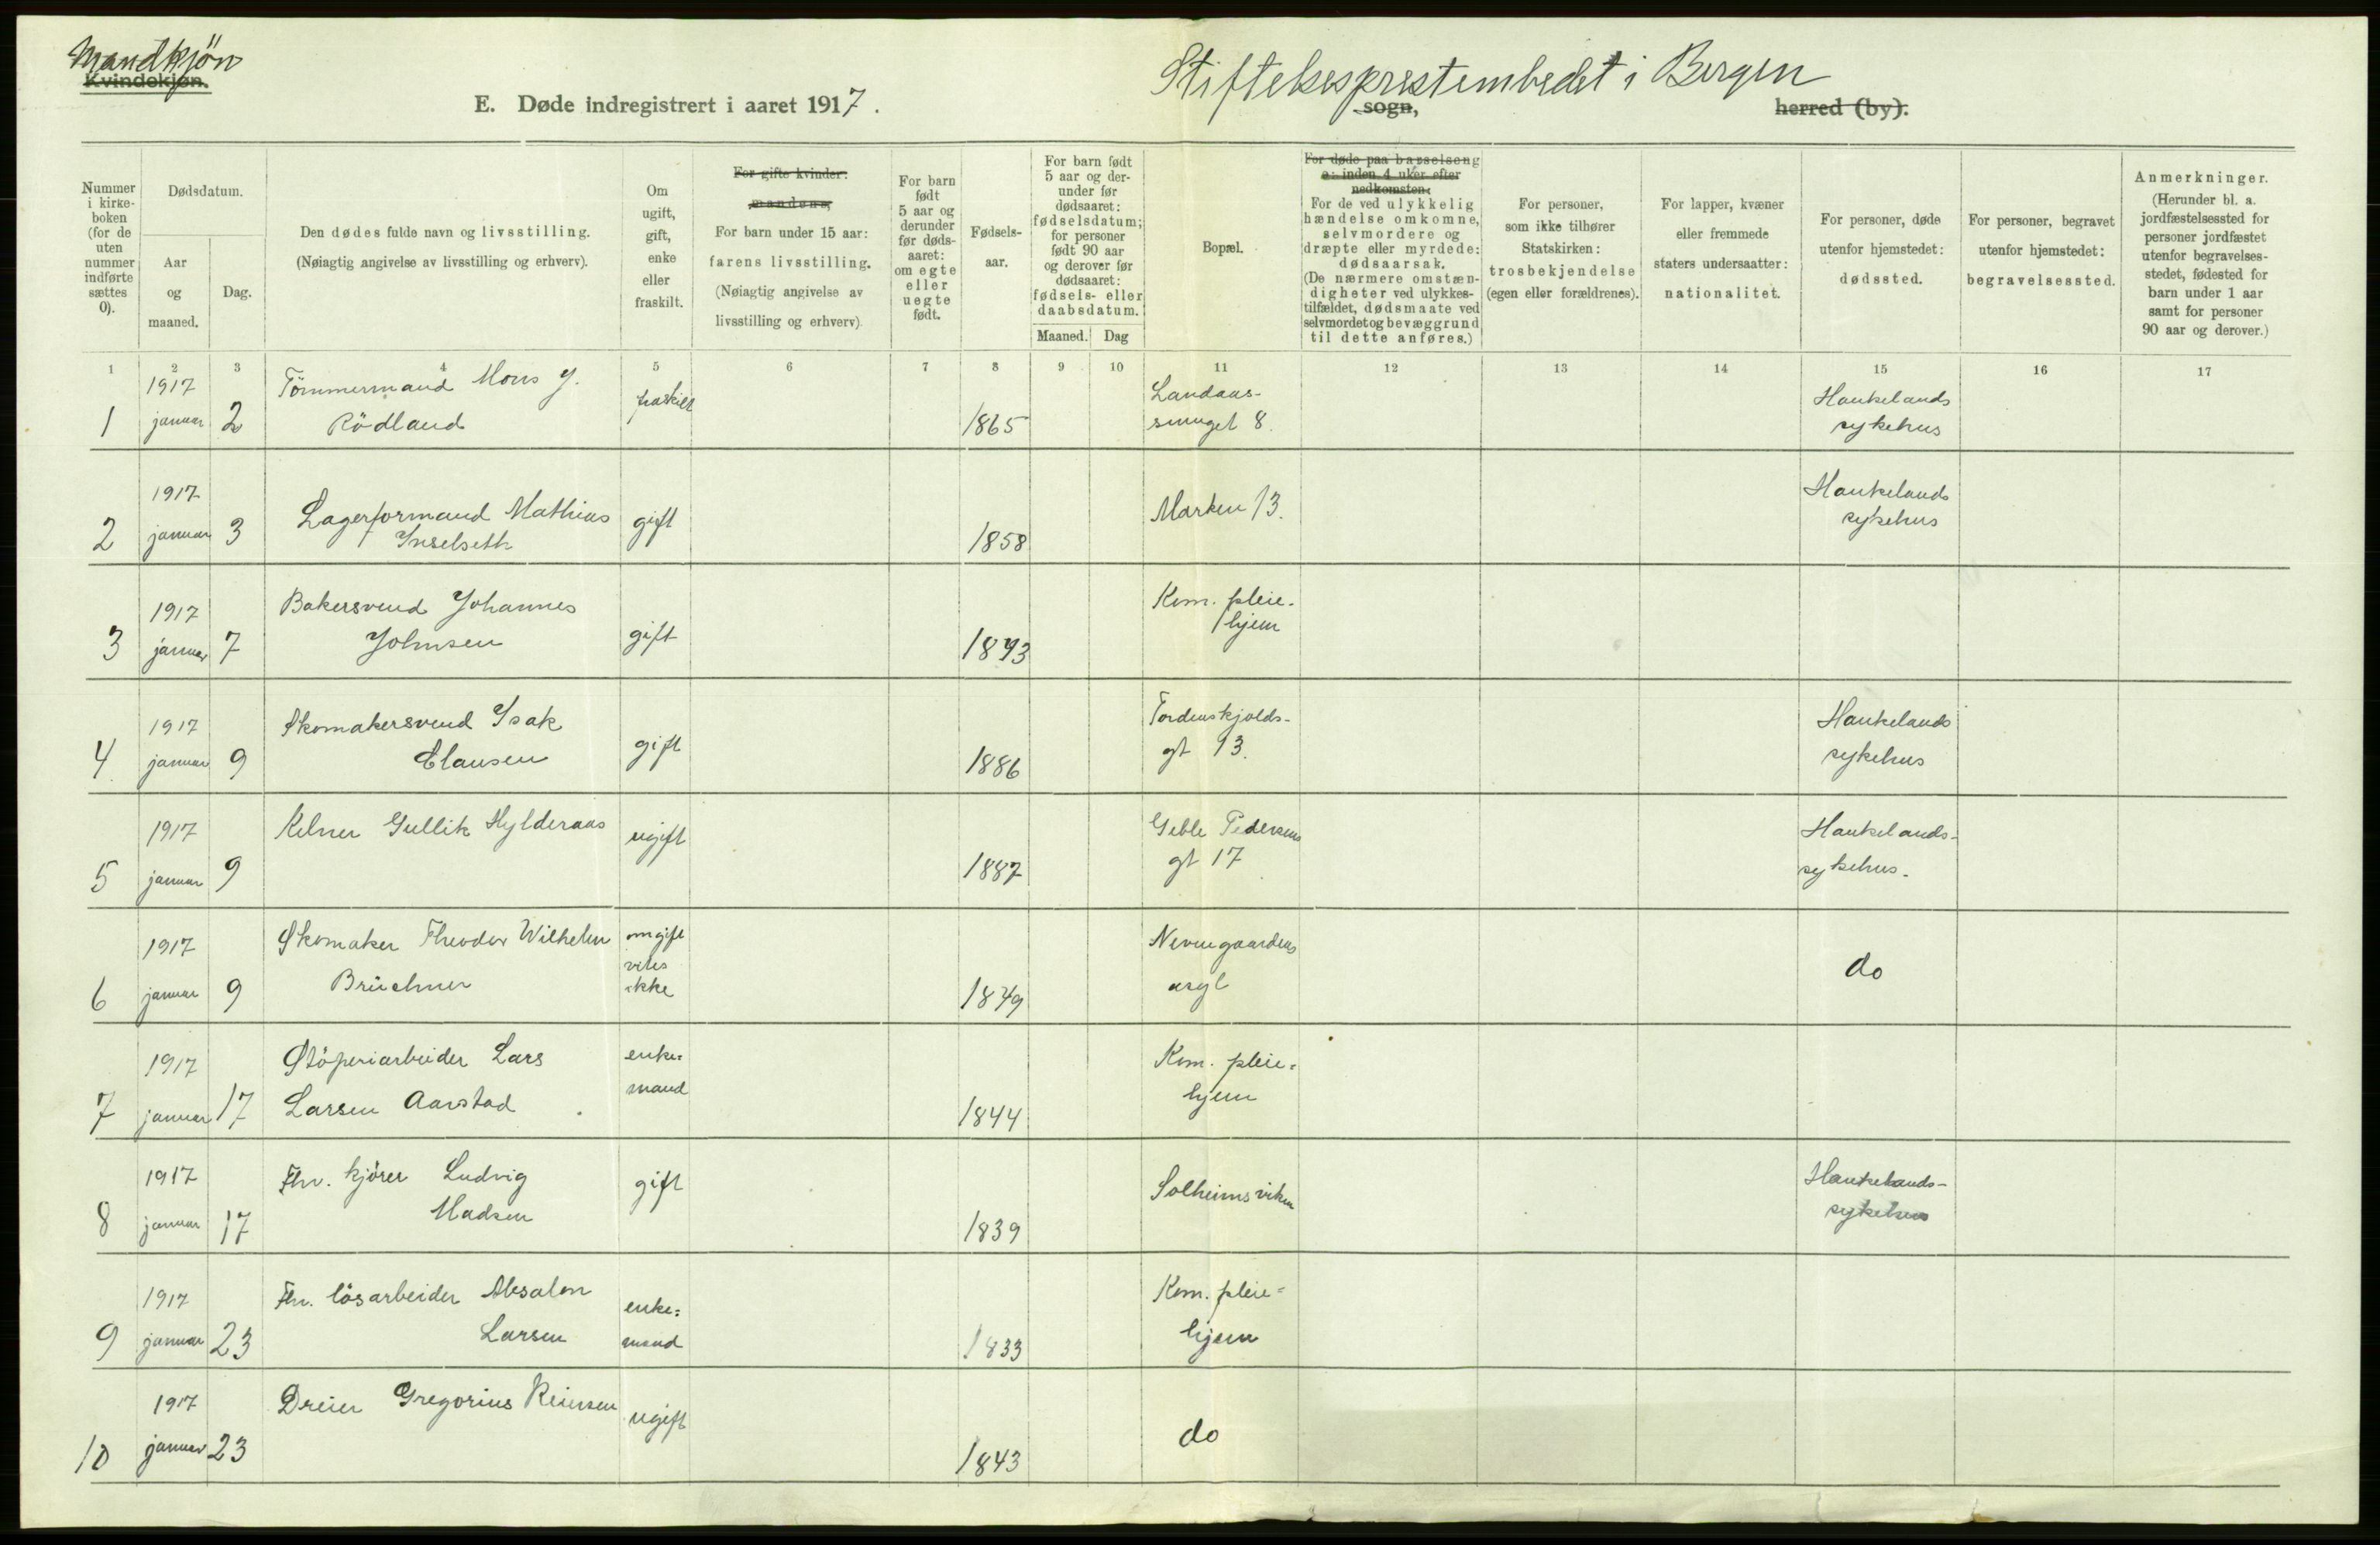 Mandkjön
Kvindekjøn.
Stiftelsesprestembedet i Bergen
E. Døde indregistrert i aaret 1917.
sogn,
herred (by).
Nummer i kirkeboken (for de uten nummer indførte sættes 0).
Dødsdatum.
Aar og maaned.
Dag.
Den dødes fulde navn og livsstilling.
(Nøiagtig angivelse av livsstilling og erhverv).
Om ugift, gift, enke eller fraskilt.
For gifte kvinder:
mandens,
For barn under 15 aar:
farens livsstilling.
(Nøiagtig angivelse av livsstilling og erhverv).
For barn født 5 aar og derunder før dødsaaret: om egte eller uegte født.
Fødselsaar.
For barn født 5 aar og derunder før dødsaaret: fødselsdatum; for personer født 90 aar og derover før dødsaaret: fødsels- eller daabsdatum.
Maaned.
Dag
Bopæl.
For døde paa barselseng ɔ: inden 4 uker efter nedkomsten:
For de ved ulykkelig hændelse omkomne, selvmordere og dræpte eller myrdede: dødsaarsak.
(De nærmere omstændigheter ved ulykkestilfældet, dødsmaate ved selvmordet og bevæggrund til dette anføres.)
For personer, som ikke tilhører Statskirken: trosbekjendelse (egen eller forældrenes).
For lapper, kvæner eller fremmede staters undersaatter: nationalitet.
For personer, døde utenfor hjemstedet: dødssted.
For personer, begravet utenfor hjemstedet: begravelsessted.
Anmerkninger.
(Herunder bl. a. jordfæstelsessted for personer jordfæstet utenfor begravelsesstedet, fødested for barn under 1 aar samt for personer 90 aar og derover.)
1 2 3 4 5 6 7 8 9 10 11 12 13 14 15 16 17
1917 Tömmermand Mons J. fraskilt Landaas- Haukelands
1 januar 2 Rödland 1865 smuget 8. sykehus
1917 Haukelands
2 januar 3 Lagerformand Mathias gift 1858 Marken 13. sykehus
Inselseth
1917 Bakersvend Johannes Kom. pleie-
3 januar 7 Johnsen gift 1893 hjem
1917 Skomakersvend Isak Tordenskjolds- Haukelands
4 januar 9 Clausen gift 1886 gt 13. sykehus
1917 Kelner Gullik Hylderaas ugift Geble Pedersens Haukelands-
5 januar 9 1887 gt 17 sykehus.
1917 Skomaker Theodor Wilhelm om gift Nevengaardens do
vites
6 januar 9 Brüchner ikke 1849 asyl
1917 Stöperiarbeider Lars enke= Kom. pleie=
7 januar 17 Larsen Aarstad mand 1844 hjem
1917 Fhv. kjörer Ludvig gift Solheimsviken Haukelands-
8 januar 17 Madsen 1839 sykehus
1917 Fhv. lösarbeider Absalon enke= Kom. pleie=
9 januar 23 Larsen mand 1833 hjem
1917 Dreier Gregorius Reiersen ugift do
10 januar 23 1843